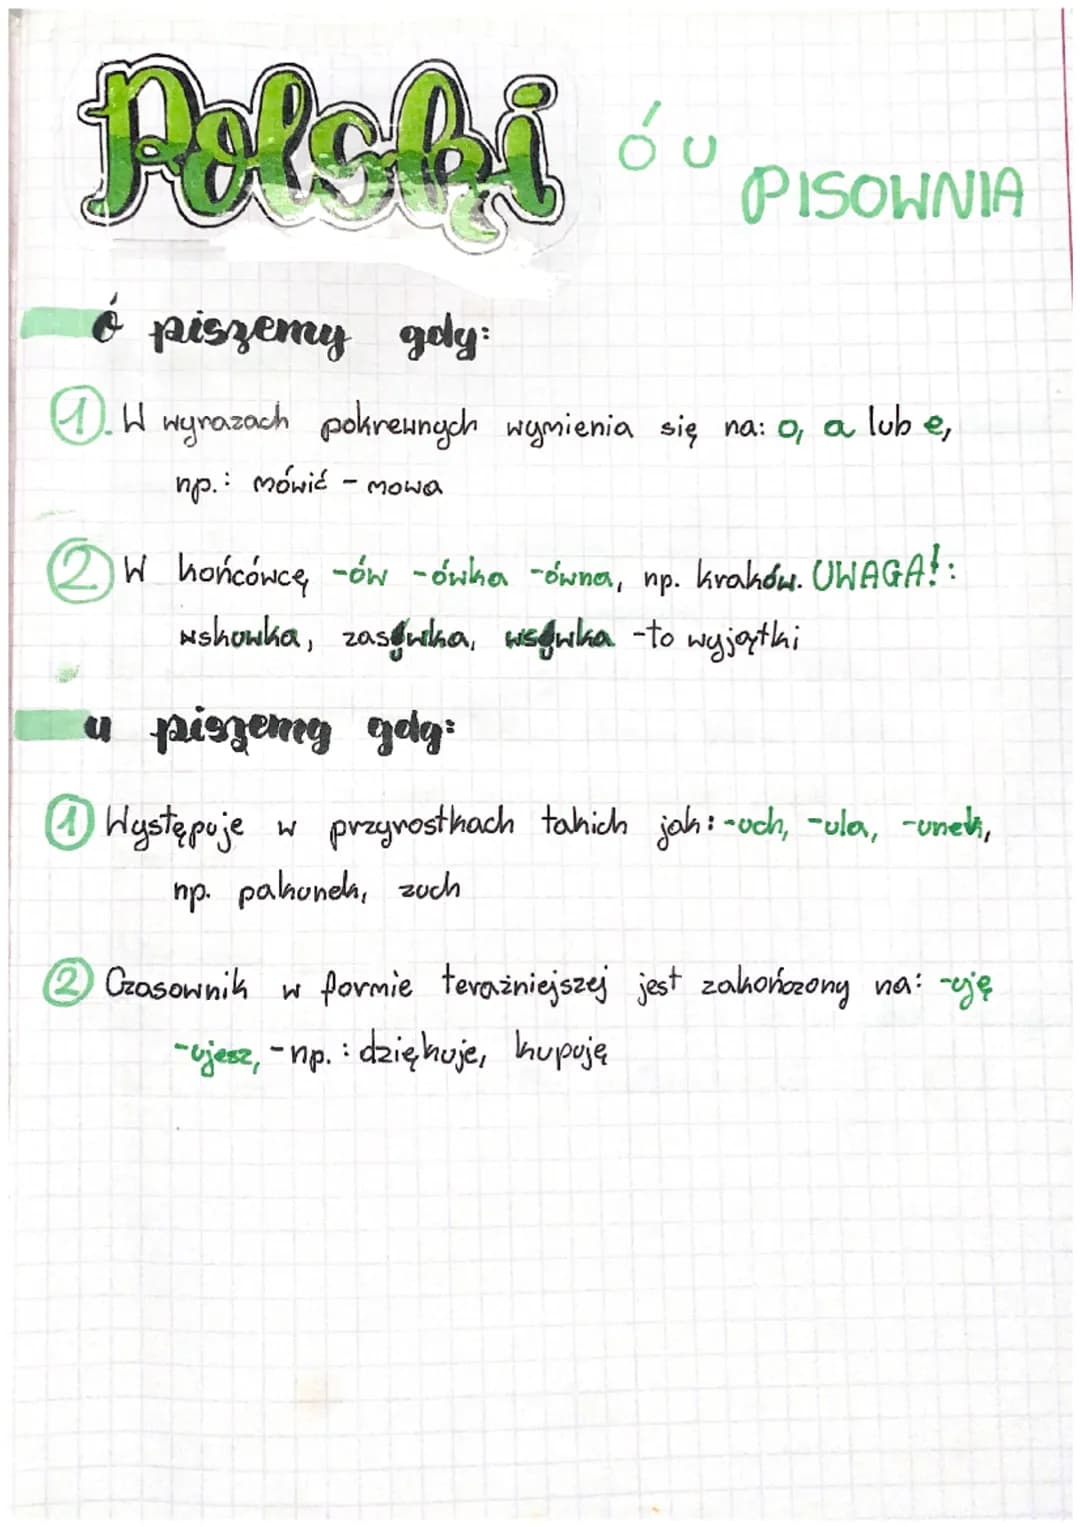 Polski ó u
PISOWNIA
ó piszemy gdy:
1. W wyrazach pokrewnych wymienia się na: o, a lub e,
np.: mówić - mowa
2 W końcówcę -ów -ówka -ówna, np. kraków. UWAGA!:
wskuwka, zasuwka, wsuwka -to wyjątki
u piszemy gdy:
1 Występuje w przyrostkach takich jak: -uch, -ula, -unek,
np. pakunek, zuch
2 Czasownik w formie teraźniejszej jest zakończony na: -uję
-ujesz, -np.: dziękuje, kupuję